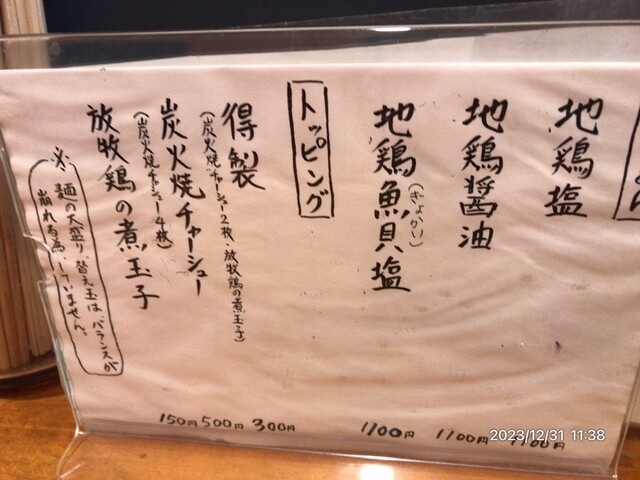 地鶏塩
1100円
地鶏醤油
1100円
地鶏魚貝塩
(ぎょかい)
1100円
トッピング
得製
(炭火焼チャーシュー2枚、放牧鶏の煮玉子)
300円
炭火焼チャーシュー
(炭火焼チャーシュー4枚)
500円
放牧鶏の煮玉子
150円
※麺の大盛り、替え玉は、バランスが
崩れる為、していません。
2023/12/31 11:38